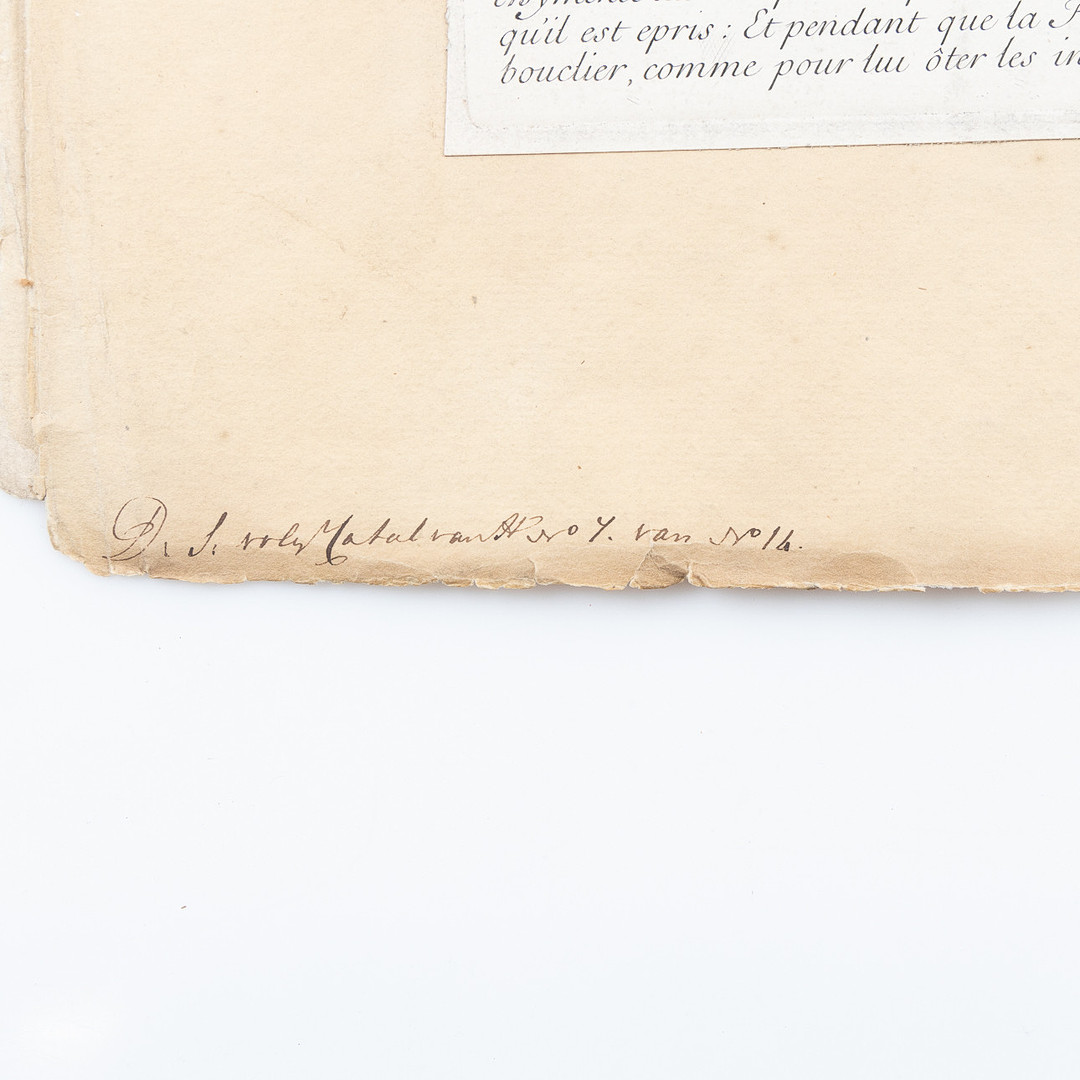 qu'il est epris : Et pendant que la
bouclier, comme pour lui ôter les
D. S. volg Catal van No 7. van No 14.